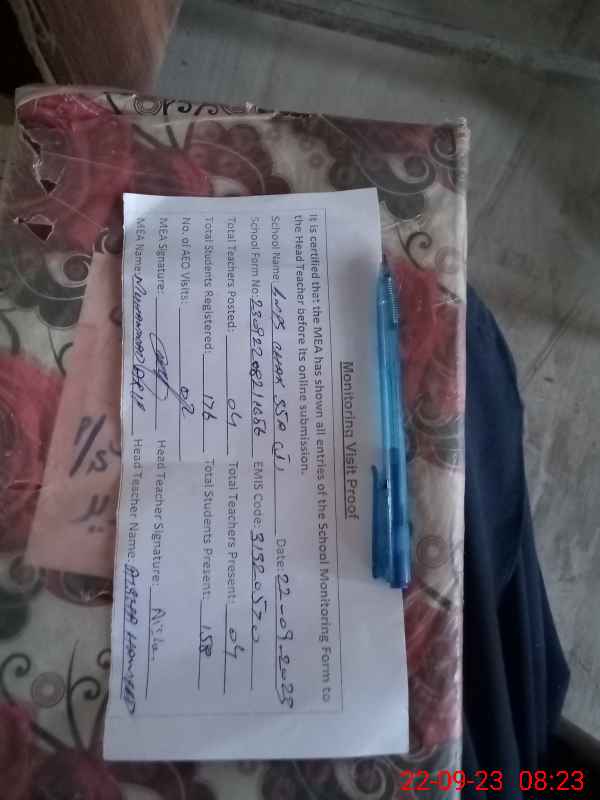 Monitoring Visit Proof
It is certified that the MEA has shown all entries of the School Monitoring Form to
the Head Teacher before its online submission.
School Name: Date: 22-09-2023
School Form No: EMIS Code: 31320570
Total Teachers Posted: 04 Total Teachers Present: 04
Total Students Registered: 176 Total Students Present: 158
No. of AEO Visits: 02
MEA Signature: Head Teacher Signature:
MEA Name: Muhammad Head Teacher Name:
22-09-23 08:23